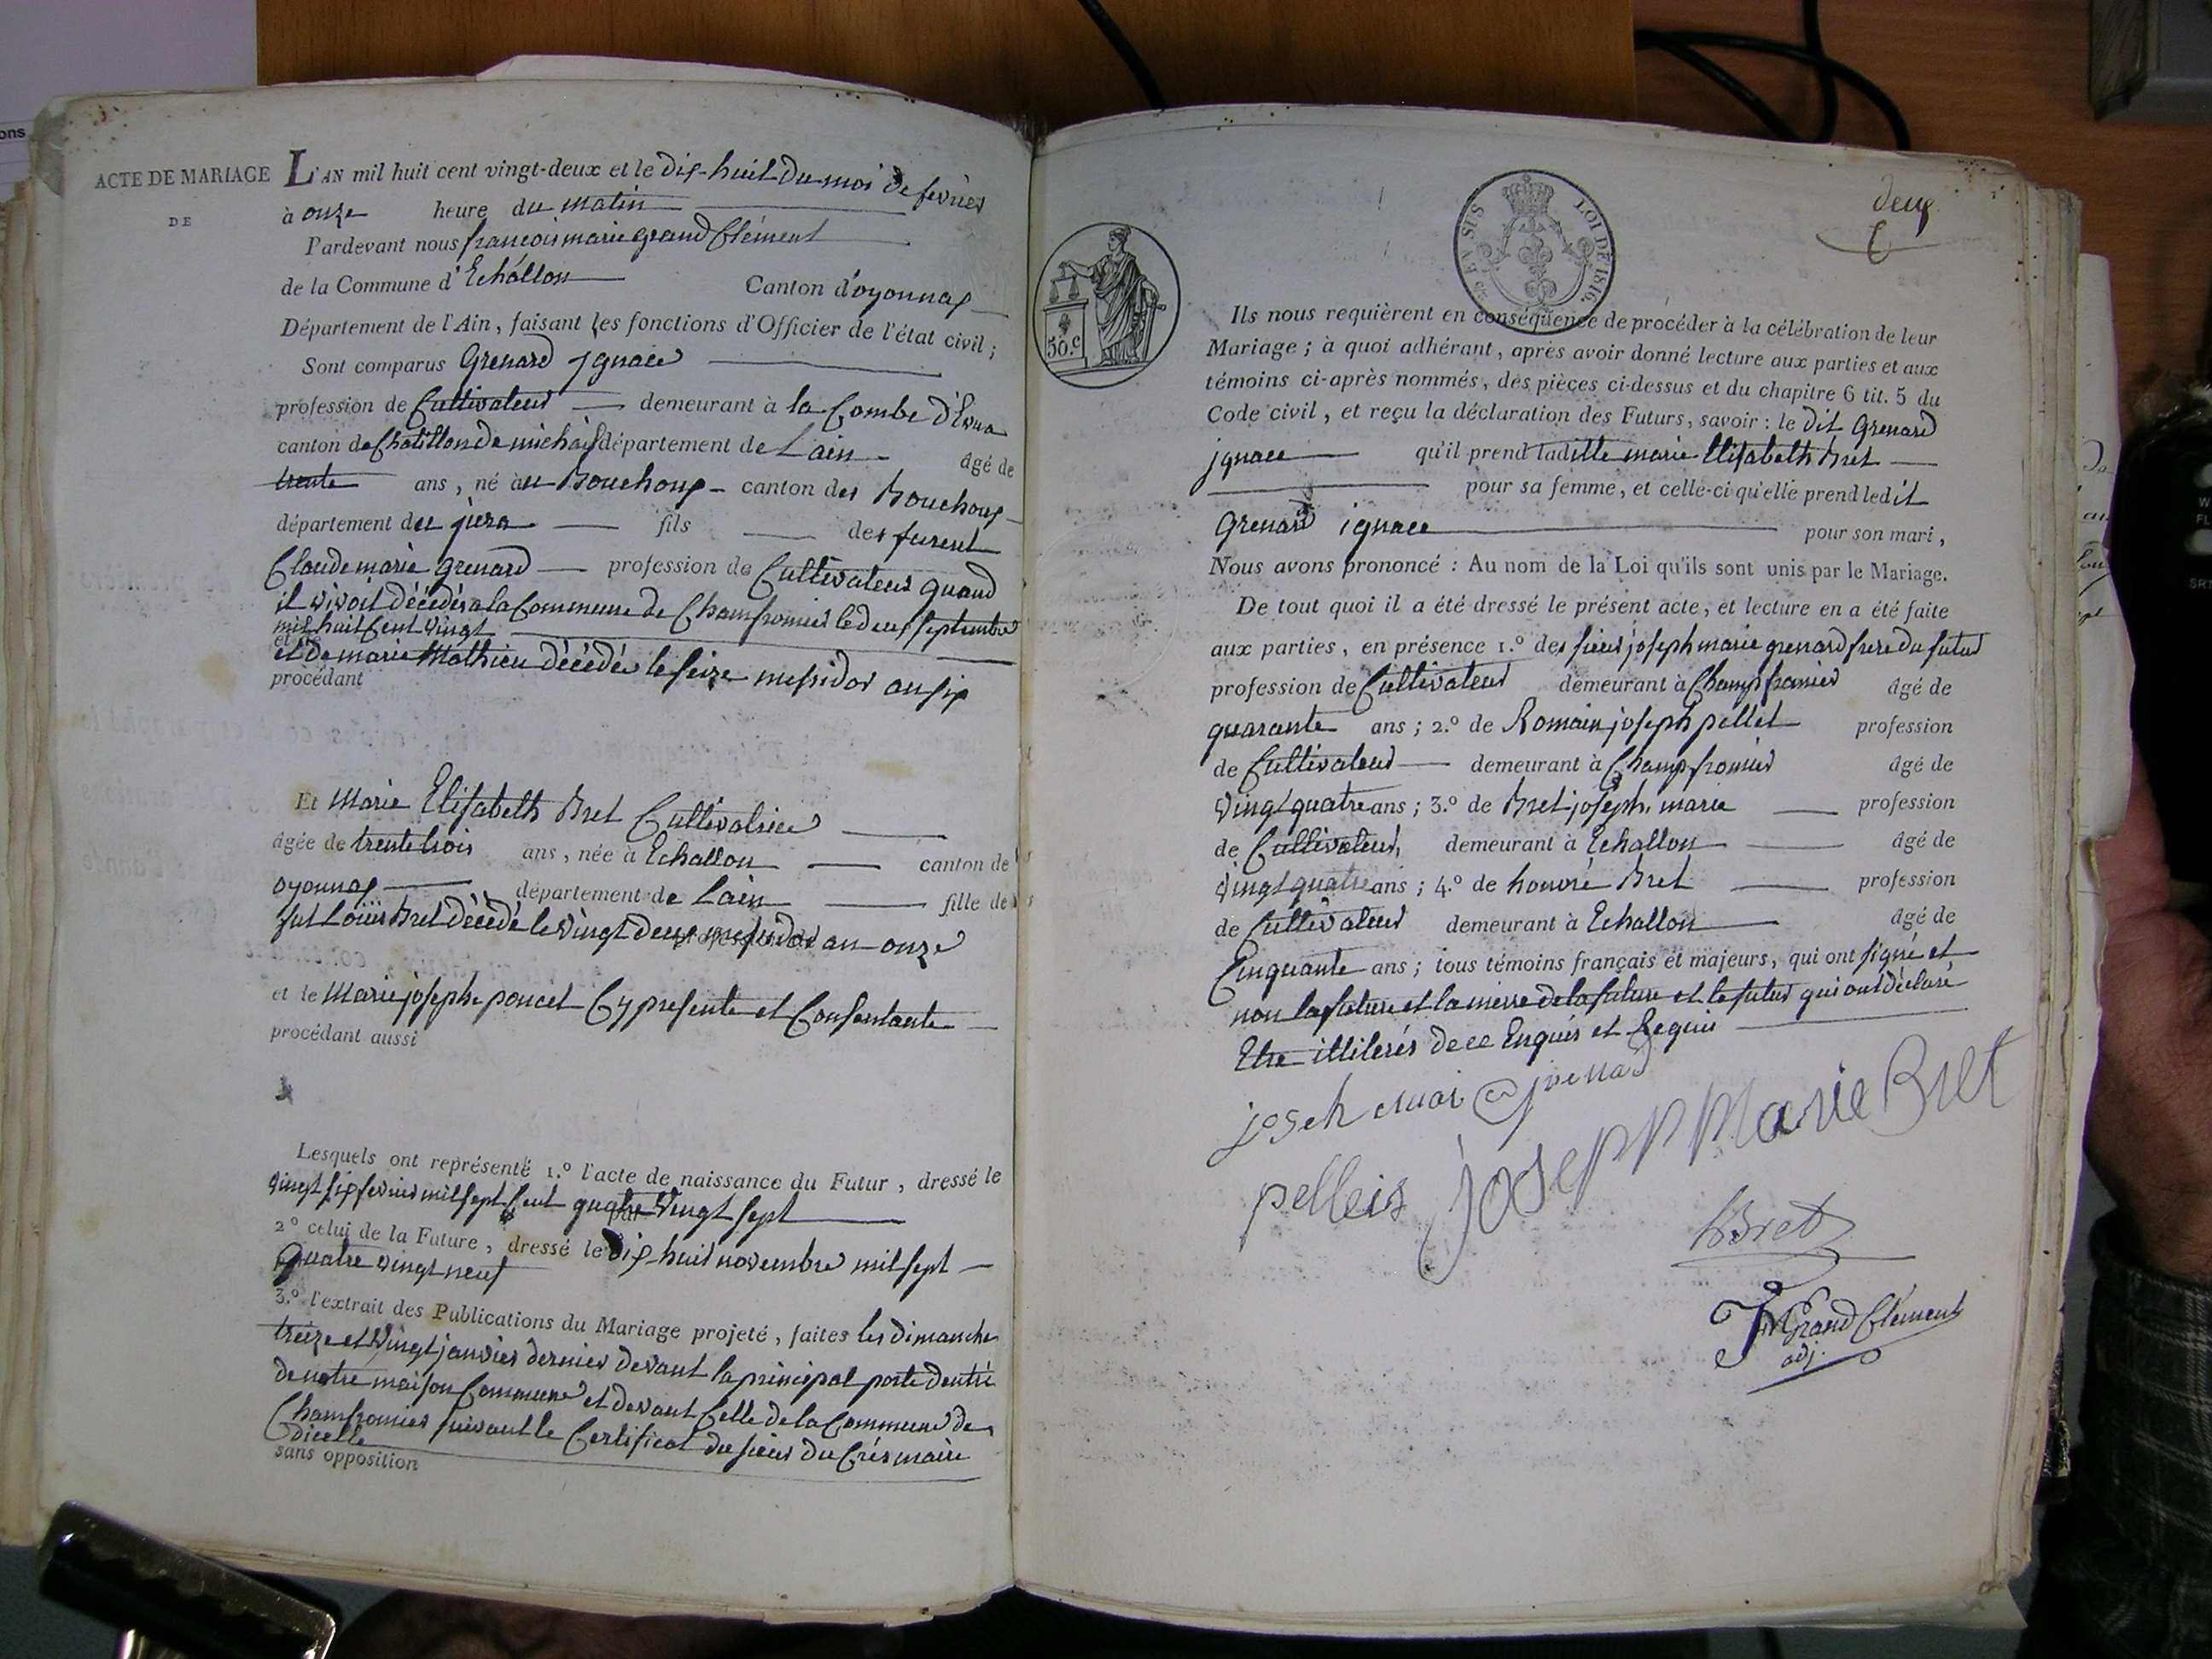 ons
ACTE DE MARIAGE
DE
L'AN mil huit cent vingt-deux et le dix-huit du moi de fevrier
à onze heure du matin
Pardevant nous françois marie grand Clément
de la Commune d'Echallon Canton d'oyonnax
Département de l'Ain, faisant les fonctions d'Officier de l'état civil ;
Sont comparus Grenard jgnace
profession de Cultivateur demeurant à la Combe d'Evua
canton de Chatillon de michaille département de Lain âgé de
trente ans, né à au Bouchoux canton des Bouchoux
département du jura fils des furent
Claude marie Grenard profession de Cultivateur quand
il vivoit décédés a la Commune de Chamfromier le deux septembre
mil huit Cent vingt
et de
et de marie Mathieu décédée le seize messidor an six
procédant
Et Marie Elisabeth Bret Cultivatrice
âgée de trente trois ans, née à Echallon canton de
oyonnax département de Lain fille de
fut Loüis Bret décédé le vingt deux messidor an onze
et le Marie josephe poncet Cy presente et Consentante
procédant aussi
Lesquels ont représenté 1.º l'acte de naissance du Futur, dressé le
vingt six fevrier mil sept Cent quatre vingt sept
2º celui de la Future, dressé le dix-huit novembre mil sept
quatre vingt neuf
3.º l'extrait des Publications du Mariage projeté, faites les dimanche
treize et vingt janvier dernier devant la principal porte dentré
de notre maison Commune et devant Celle de la Commune de
Chamfromier suivant le Certificat du sieur du Crés maire
dicelle
sans opposition
EN SUS LOI DE 1816.
50.c
deux
Ils nous requièrent en conséquence de procéder à la célébration de leur
Mariage ; à quoi adhérant, après avoir donné lecture aux parties et aux
témoins ci-après nommés, des pièces ci-dessus et du chapitre 6 tit. 5 du
Code civil, et reçu la déclaration des Futurs, savoir : le dit Grenard
jgnace qu'il prend laditte marie Elisabeth Bret
pour sa femme, et celle-ci qu'elle prend ledit
Grenard ignace pour son mari,
Nous avons prononcé : Au nom de la Loi qu'ils sont unis par le Mariage.
De tout quoi il a été dressé le présent acte, et lecture en a été faite
aux parties, en présence 1.º des sieur joseph marie grenard frere du futur
profession de Cultivateur demeurant à Champfromier âgé de
quarante ans ; 2.º de Romain joseph pellet profession
de Cultivateur demeurant à Champfromier âgé de
vingt quatre ans ; 3.º de Bret joseph marie profession
de Cultivateur, demeurant à Echallon âgé de
vingt quatre ans ; 4.º de honoré Bret profession
de Cultivateur demeurant à Echallon âgé de
Cinquante ans ; tous témoins français et majeurs, qui ont signé et
non la future et la mere de la future et le futur qui ont déclaré
Etre illiterés de ce Enquis et Requis
joseh mari grenad
pelleis joseph Marie Bret
hBret
FMGrand Clément
adj.